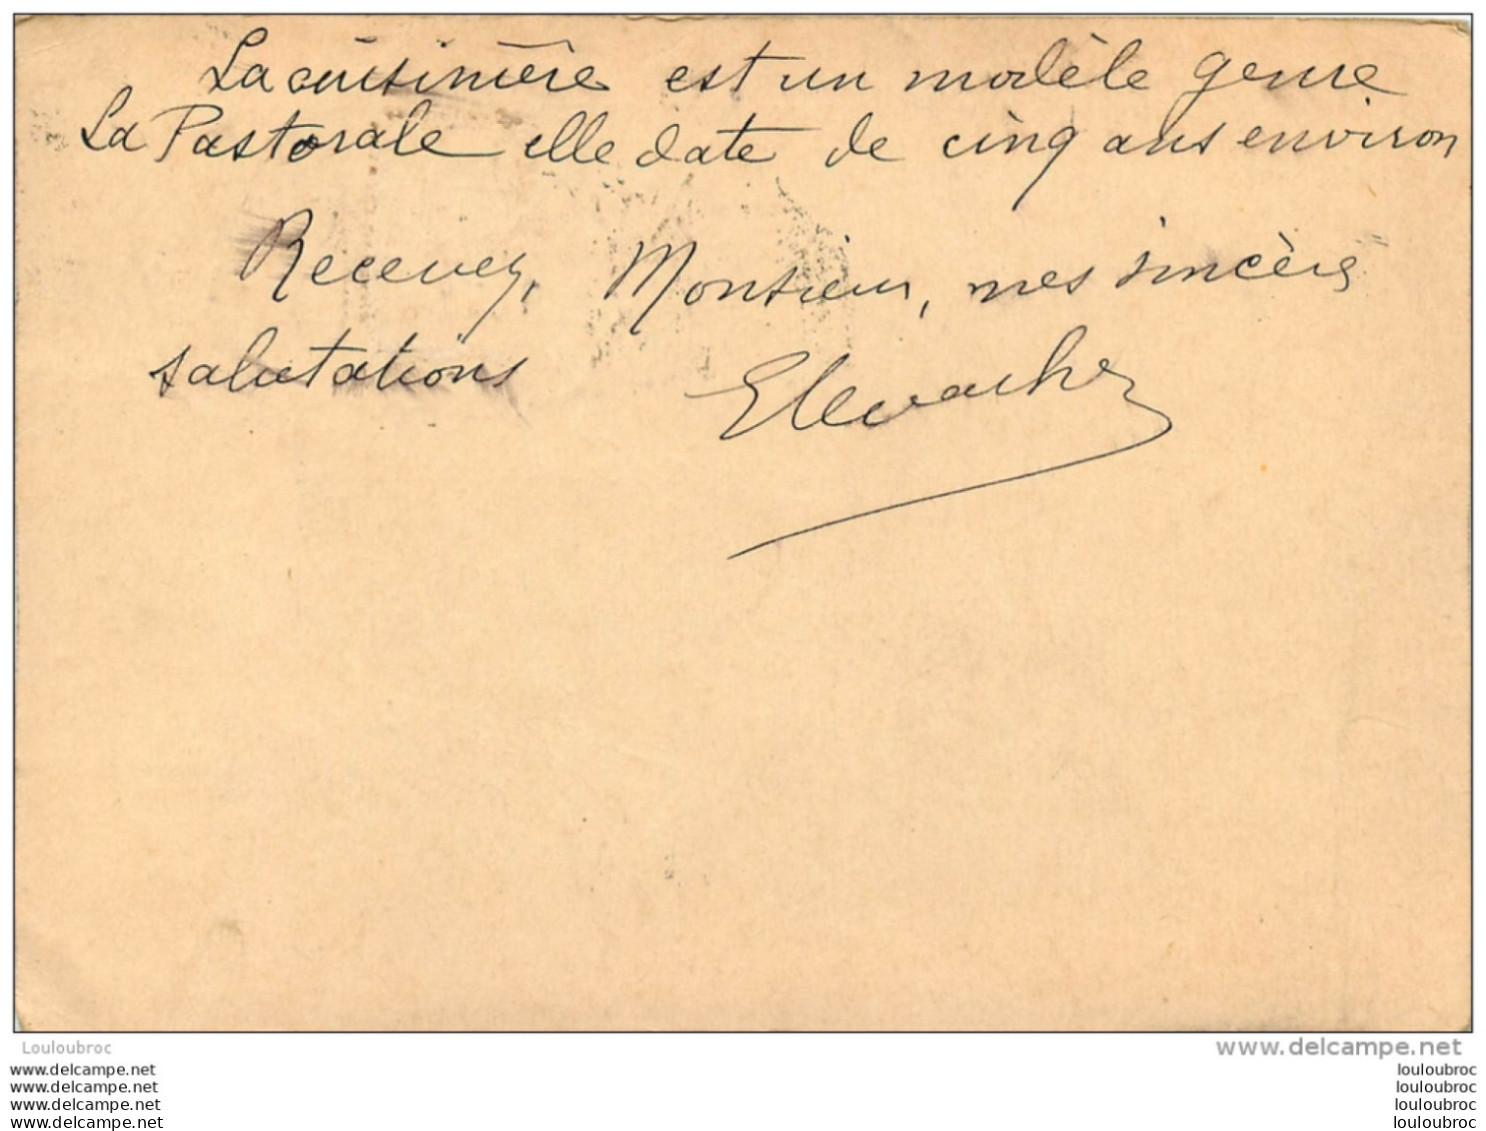 La cuisinière est un modèle genre
La Pastorale elle date de cinq ans environ
Recevez, Monsieur, mes sincères
salutations
Louloubroc
www.delcampe.net
www.delcampe.net
www.delcampe.net
www.delcampe.net
www.delcampe.net
louloubroc
louloubroc
louloubroc
louloubroc